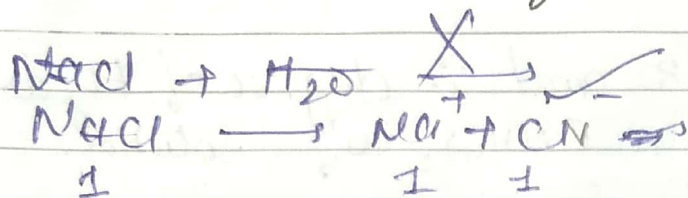 NaCl + H₂O ⟶
NaCl ⟶ Na⁺ + CN⁻ ⇒
1 1 1